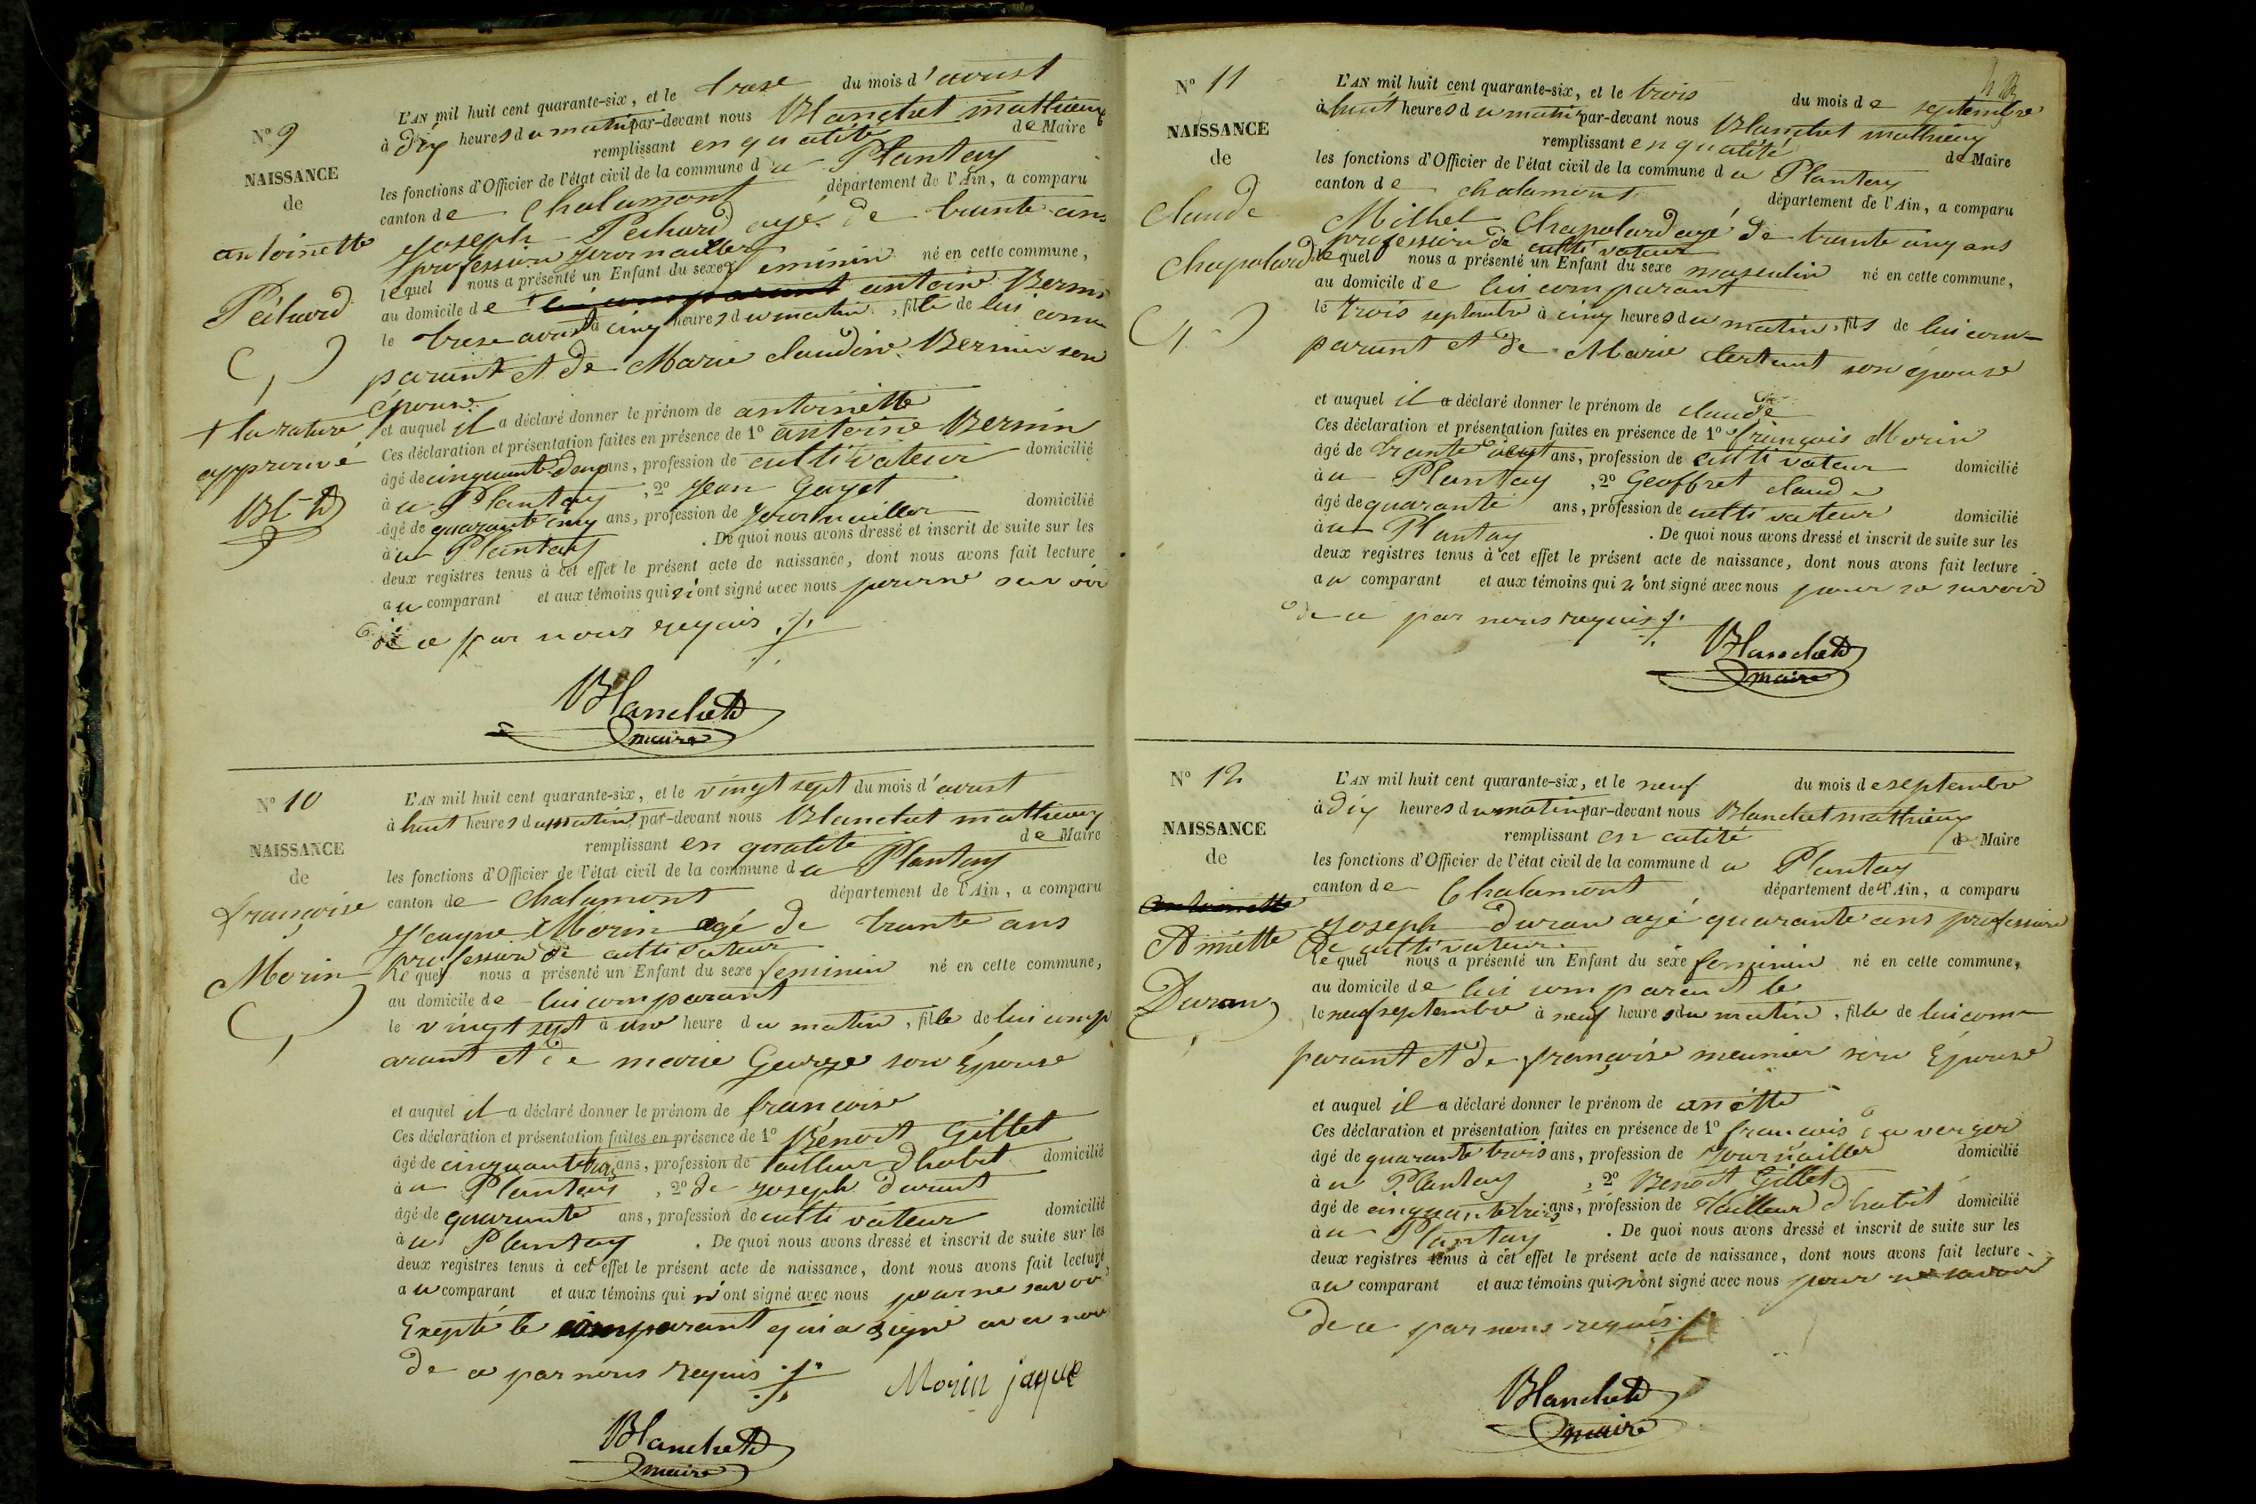 N° 9
NAISSANCE
de
antoinette
Péchard
+ la rature
approuvé
Bl-t
L'AN mil huit cent quarante-six, et le trese du mois d'avust
à dix heures du matin par-devant nous Blanchet mathieux
remplissant en qualité de Maire
les fonctions d'Officier de l'état civil de la commune du Plantay
canton de Chalamont département de l'Ain, a comparu
Joseph Péchard agé de trante ans
profession journailler
lequel nous a présenté un Enfant du sexe feminin né en cette commune,
au domicile de lui comparant antoin Bernin
le trese avust à cinq heures du matin, fille de lui com
parant et de Marie claudine Bernin son
épouse
et auquel il a déclaré donner le prénom de antoinette
Ces déclaration et présentation faites en présence de 1° antoine Bernin
âgé de cinquante deux ans, profession de cultivateur domicilié
à u Plantay, 2° Jean Gayet
âgé de quarante cinq ans, profession de journailler domicilié
à u Plantay. De quoi nous avons dressé et inscrit de suite sur les
deux registres tenus à cet effet le présent acte de naissance, dont nous avons fait lecture
au comparant et aux témoins qui n'ont signé avec nous pour ne savoir
de ce par nous requis
Blanchet
maire
N° 10
NAISSANCE
de
françoise
Morin
L'AN mil huit cent quarante-six, et le vingt sept du mois d'avust
à huit heures du matin par-devant nous Blanchet mathieux
remplissant en qualité de Maire
les fonctions d'Officier de l'état civil de la commune du Plantay
canton de Chalamont département de l'Ain, a comparu
Morin agé de trante ans
profession de cultivateur
lequel nous a présenté un Enfant du sexe feminin né en cette commune,
au domicile de lui comparant
le vingt sept à une heure du matin, fille de lui comp
arant et de marie George son Épouse
et auquel il a déclaré donner le prénom de françoise
Ces déclaration et présentation faites en présence de 1° Benoit Gillet
âgé de cinquante trois ans, profession de tailleur dhabit domicilié
à u Plantay, 2° de joseph durant
âgé de quarante ans, profession de cultivateur domicilié
à u Plantay. De quoi nous avons dressé et inscrit de suite sur les
deux registres tenus à cet effet le présent acte de naissance, dont nous avons fait lecture
au comparant et aux témoins qui n'ont signé avec nous pour ne savoir
Exepté le comparant qui a signé avec nous
de ce par nous requis Morin jaque
Blanchet
maire
N° 11
NAISSANCE
de
claude
Chapolard
L'AN mil huit cent quarante-six, et le trois du mois de septembre
à huit heures du matin par-devant nous Blanchet mathieux
remplissant en qualité de Maire
les fonctions d'Officier de l'état civil de la commune du Plantay
canton de chalamont département de l'Ain, a comparu
Michel Chapolard agé de trante cinq ans
profession de cultivateur
lequel nous a présenté un Enfant du sexe masculin né en cette commune,
au domicile de lui comparant
le trois septembre à cinq heures du matin, fils de lui com-
parant et de Marie son épouse
et auquel il a déclaré donner le prénom de claude
Ces déclaration et présentation faites en présence de 1° françois Morin
âgé de trante ans, profession de cultivateur domicilié
à u Plantay, 2° Geoffret claude
âgé de quarante ans, profession de cultivateur domicilié
à u Plantay. De quoi nous avons dressé et inscrit de suite sur les
deux registres tenus à cet effet le présent acte de naissance, dont nous avons fait lecture
au comparant et aux témoins qui n'ont signé avec nous pour ne savoir
de ce par nous requis
Blanchet
maire
N° 12
NAISSANCE
de
antoinette
Aniette
Duran
L'AN mil huit cent quarante-six, et le neuf du mois de septembre
à dix heures du matin par-devant nous Blanchet mathieux
remplissant en calité de Maire
les fonctions d'Officier de l'état civil de la commune du Plantay
canton de Chalamont département de l'Ain, a comparu
joseph duran agé quarante ans profession
de cultivateur
lequel nous a présenté un Enfant du sexe feminin né en cette commune,
au domicile de lui comparant le
le neuf septembre à neuf heures du matin, fille de lui com
parant et de françoise meunier son Épouse
et auquel il a déclaré donner le prénom de aniette
Ces déclaration et présentation faites en présence de 1° francois du verger
âgé de quarante trois ans, profession de journailler domicilié
à u Plantay, 2° Benoit Gillet
âgé de cinquante trois ans, profession de tailleur dhabit domicilié
à u Plantay. De quoi nous avons dressé et inscrit de suite sur les
deux registres tenus à cet effet le présent acte de naissance, dont nous avons fait lecture
au comparant et aux témoins qui n'ont signé avec nous pour ne savoir
de ce par nous requis
Blanchet
maire